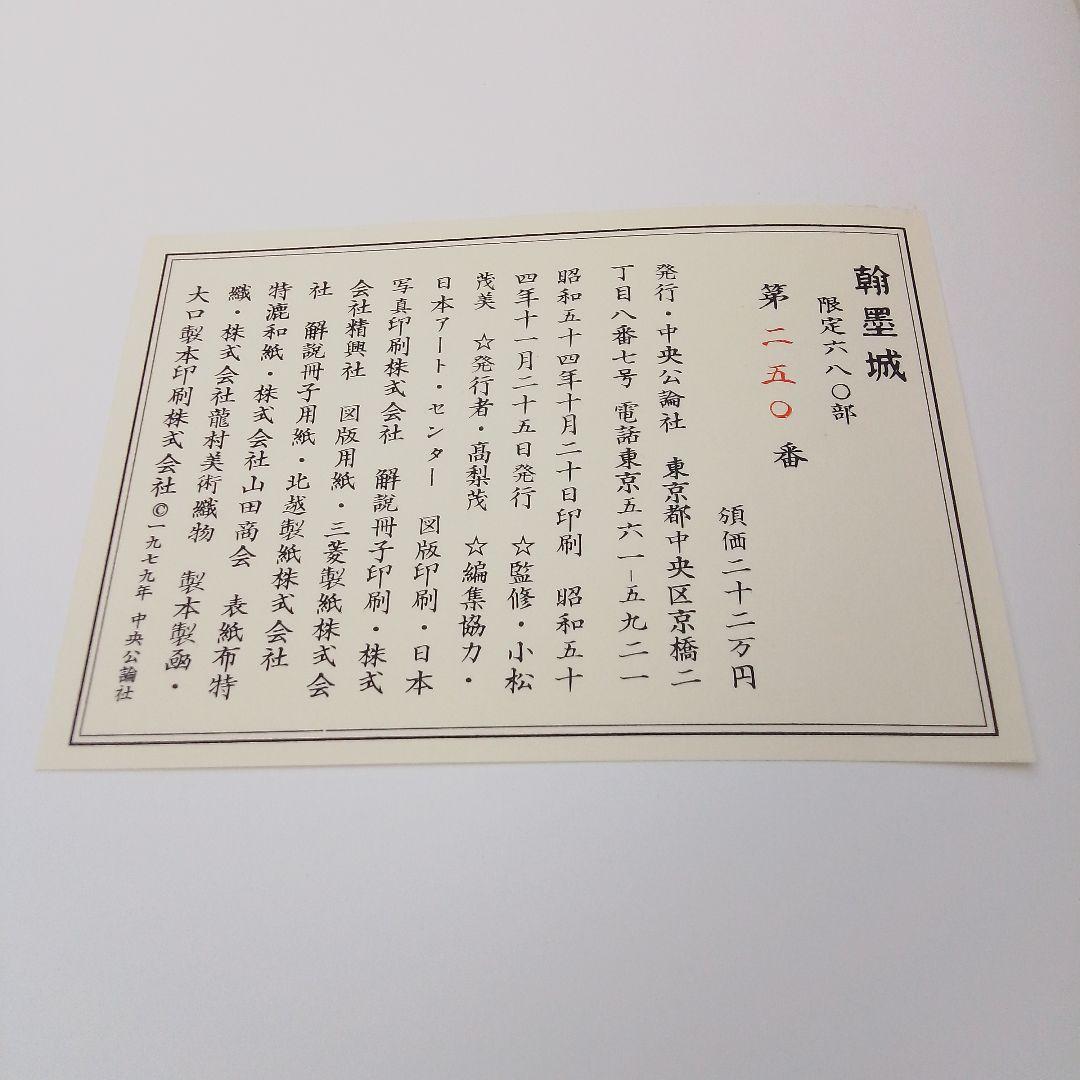 翰墨城
限定六八〇部
第二五〇番
頒価二十二万円
発行・中央公論社　東京都中央区京橋二
丁目八番七号 電話東京五六一−五九二一
昭和五十四年十月二十日印刷　昭和五十
四年十一月二十五日発行　☆監修・小松
茂美　☆発行者・髙梨茂　☆編集協力・
日本アート・センター　図版印刷・日本
写真印刷株式会社　解説冊子印刷・株式
会社精興社　図版用紙・三菱製紙株式会
社　解説冊子用紙・北越製紙株式会社
特漉和紙・株式会社山田商会　表紙布特
織・株式会社龍村美術織物　製本製函・
大口製本印刷株式会社 ©一九七九年 中央公論社